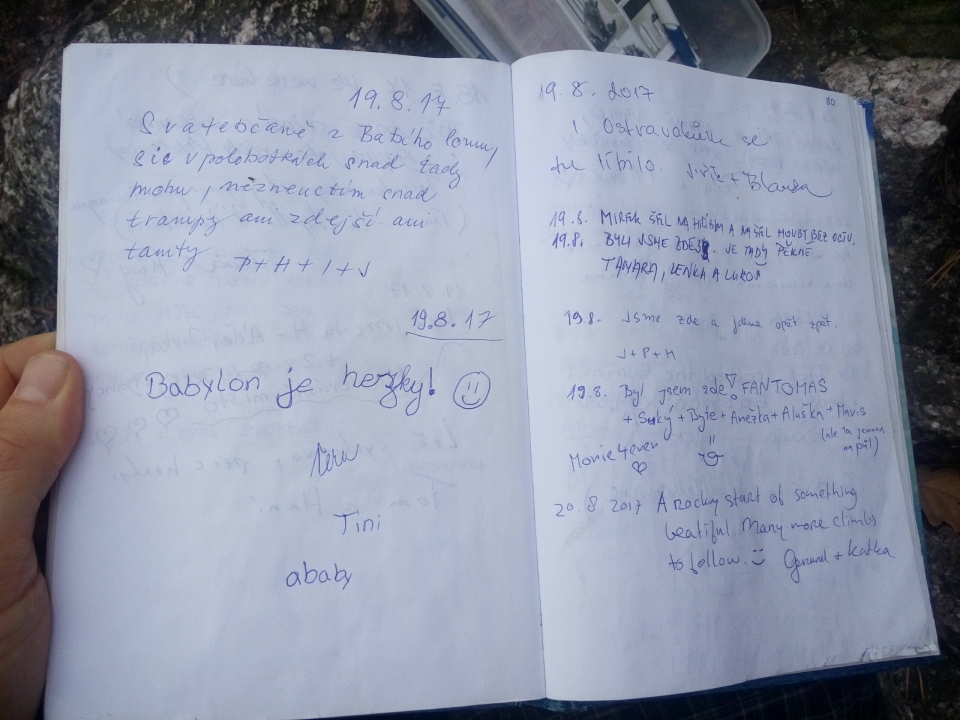 19.8.17
Svatebčané z Babího lomu,
sic v polobotkách snad tady
mohu, neznenctím snad
trampy ani zdejší ani
tamty
P + H + I + J
19.8.17
Babylon je hezky! ☺
Tini
ababy
80
19.8. 2017
I Ostravakům se
tu líbilo. Jirka + Blanka
19.8. MIREK ŠEL NA HŘIBY A NAŠEL HOUBY BEZ OCTU.
19.8. BYLI JSME ZDE. JE TADY PĚKNĚ.
TAMARA, LENKA A LUKÁŠ
19.8. Jsme zde a jdeme opět zpět.
J + P + H
19.8. Byl jsem zde! FANTOMAS
+ Suký + Byte + Anežka + Aluška + Mavis
(ale ta jenom
na půl)
Movie4ever
♡
20.8.2017 A rocky start of something
beatiful. Many more climbs
to follow. :) + Katka